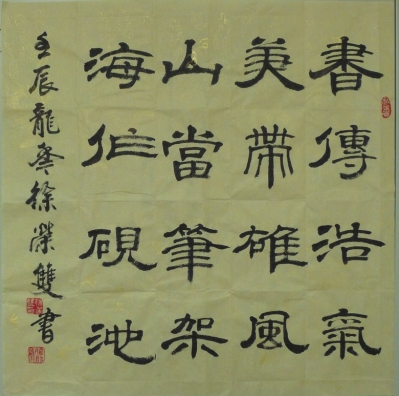 書傳浩氣
美帶雄風
山當筆架
海作硯池
壬辰龍冬徐榮雙書